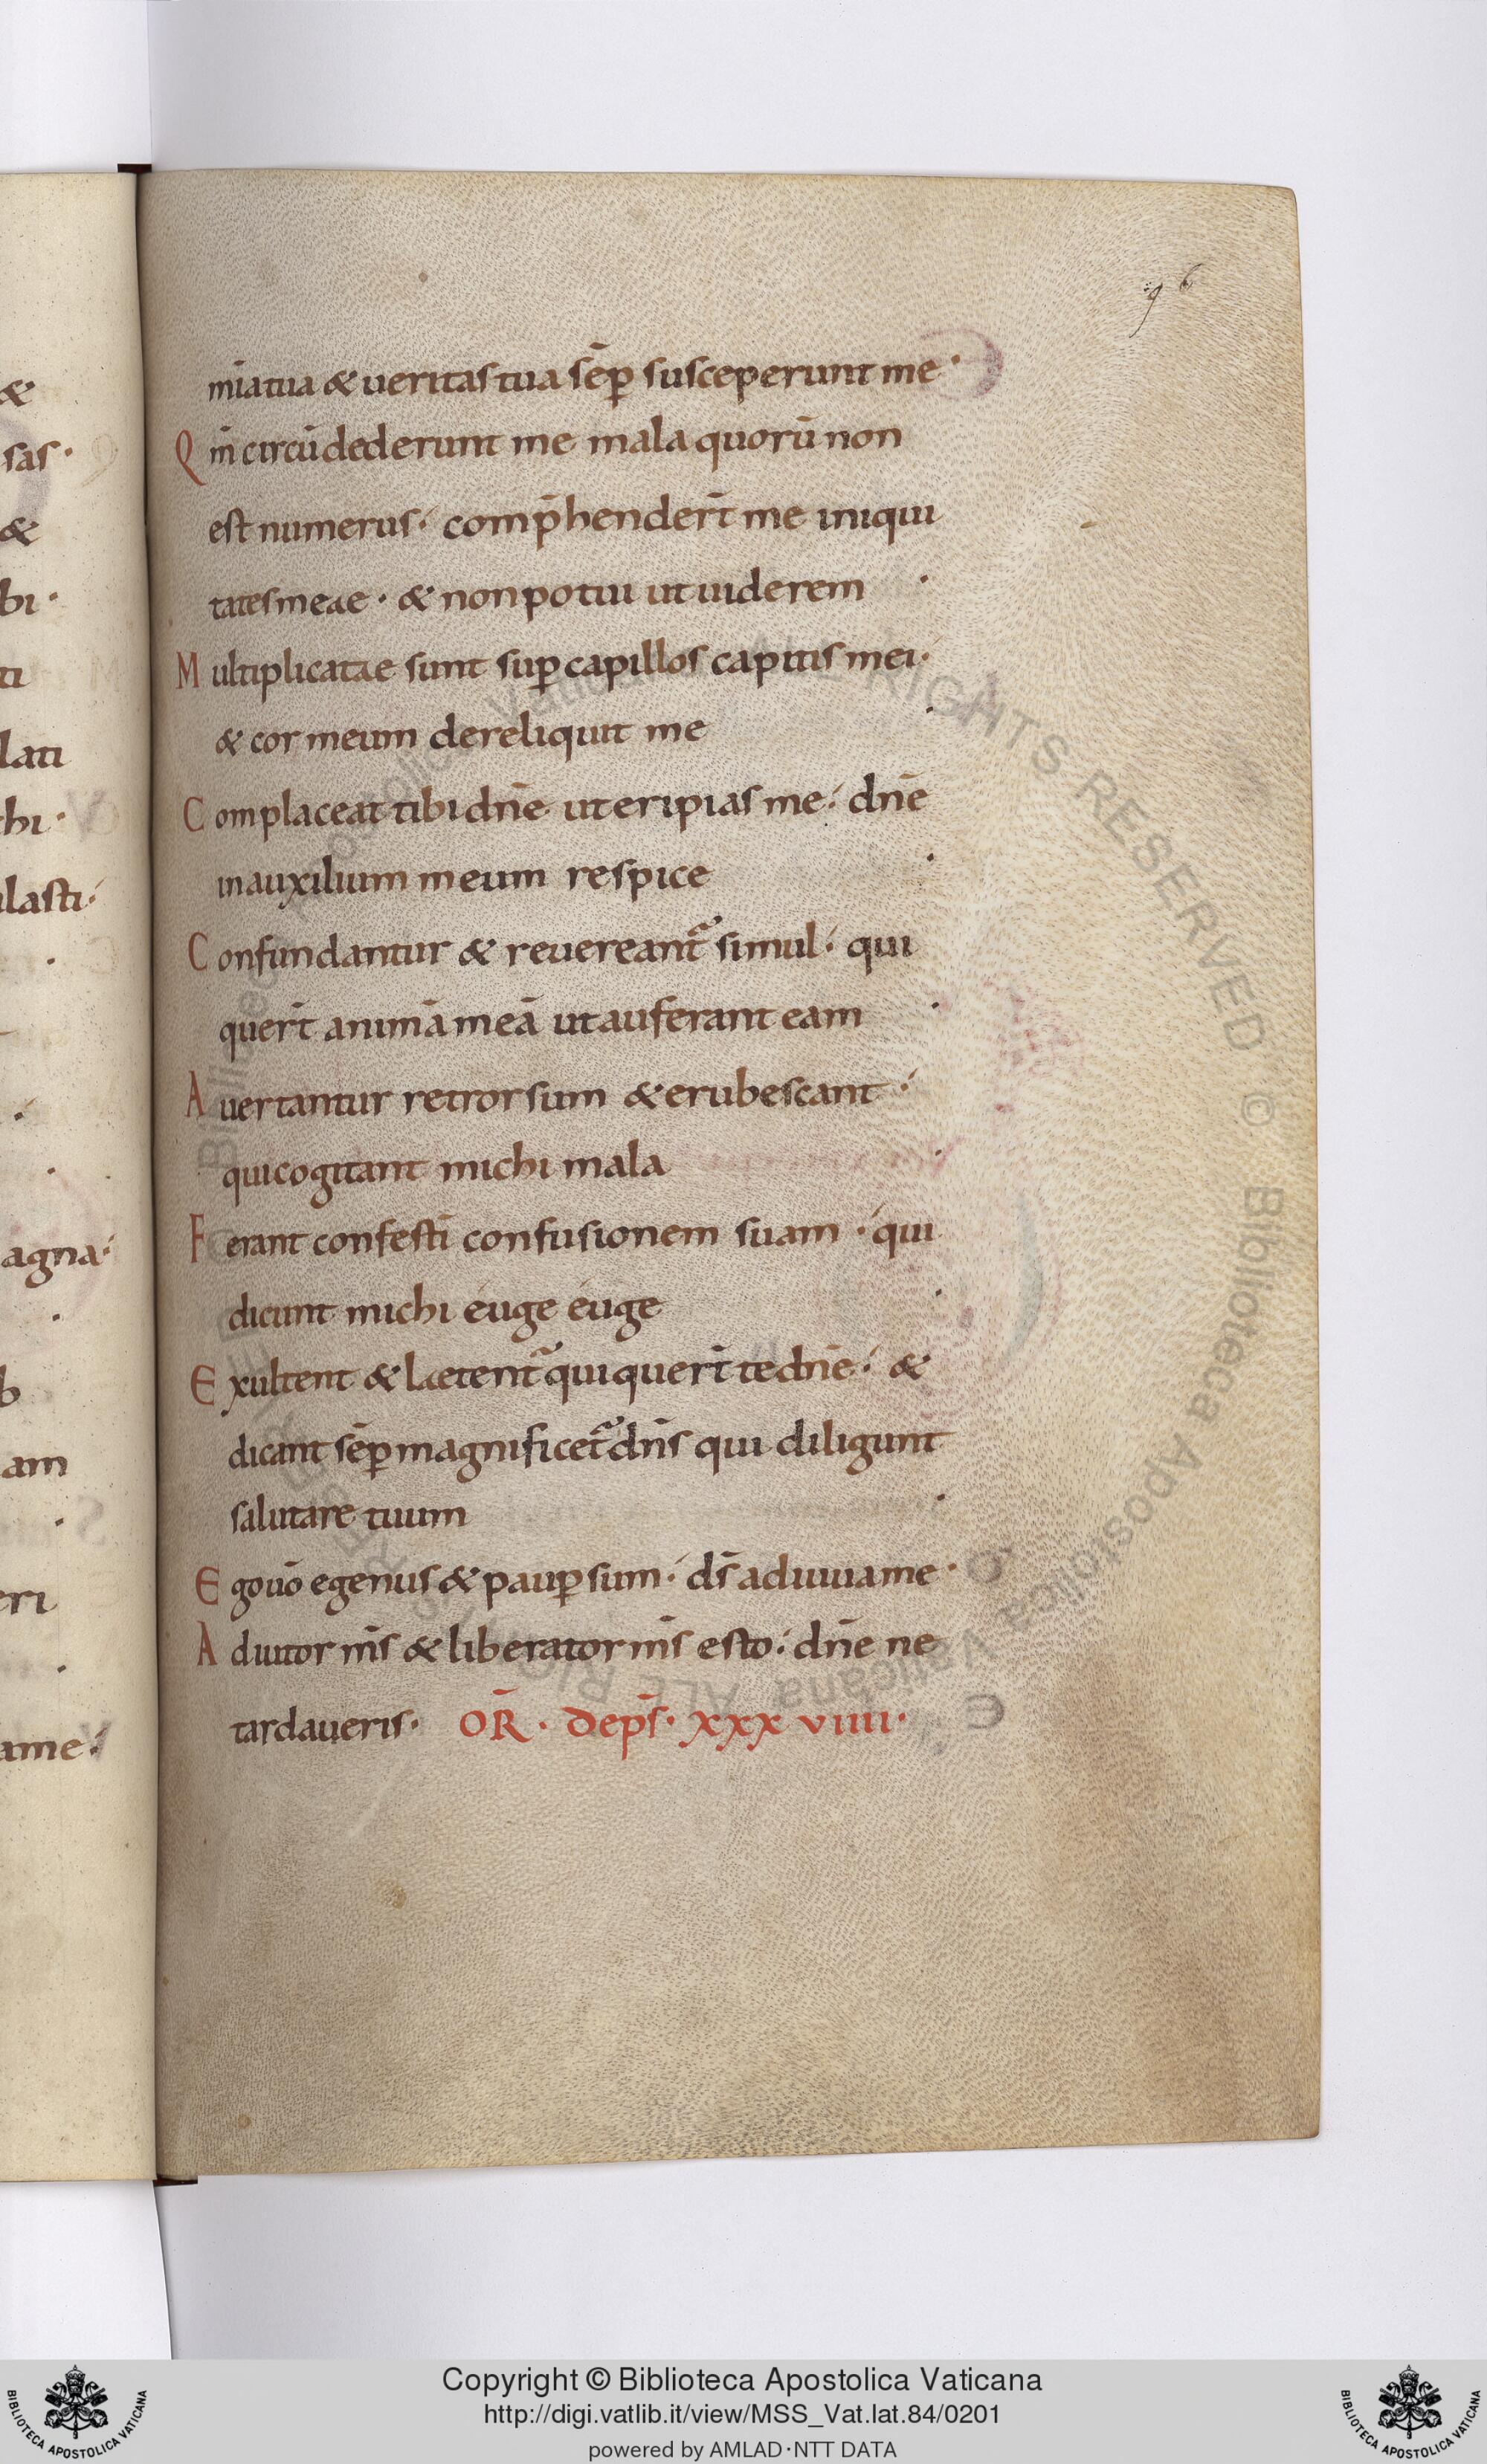 96
mīa tua & ueritas tua sēp̄ susceperunt me ·
Qm̄ circū dederunt me mala quorū non
est numerus · comp̄hendert̄ me iniqui
tates meae · & non potui ut uiderem ·
Multiplicatae sunt sup̱ capillos capitis mei ·
& cor meum dereliquit me ·
Complaceat tibi dn̄e ut eripias me · dn̄e
in auxilium meum respice ·
Confundantur & reuereant᷑ simul · qui
quert̄ animā meā ut auferant eam ·
Auertantur retrorsum & erubescant ·
qui cogitant michi mala ·
Ferant confestī confusionem suam · qui
dicunt michi éuge éuge ·
Exultent & laetent᷑ qui quert̄ te dn̄e · &
dicant sēp̱ magnificet᷑ dn̄s qui diligunt
salutare tuum ·
Ego uō egenus & paup̱ sum · ds̄ adiuua me ·
Adiutor ms̄ & liberator ms̄ esto · dn̄e ne
tardaueris · OR̄ · de ps̄ · xxxviiii ·
&
sas ·
&
bi ·
ti
lati
hi ·
lasti ·
agna ·
b
am
eri
ame ·
Copyright © Biblioteca Apostolica Vaticana
http://digi.vatlib.it/view/MSS_Vat.lat.84/0201
powered by AMLAD·NTT DATA
BIBLIOTECA APOSTOLICA VATICANA
BIBLIOTECA APOSTOLICA VATICANA
Biblioteca Apostolica Vaticana ALL RIGHTS RESERVED © Biblioteca Apostolica Vaticana ALL RIGHTS RESERVED ©